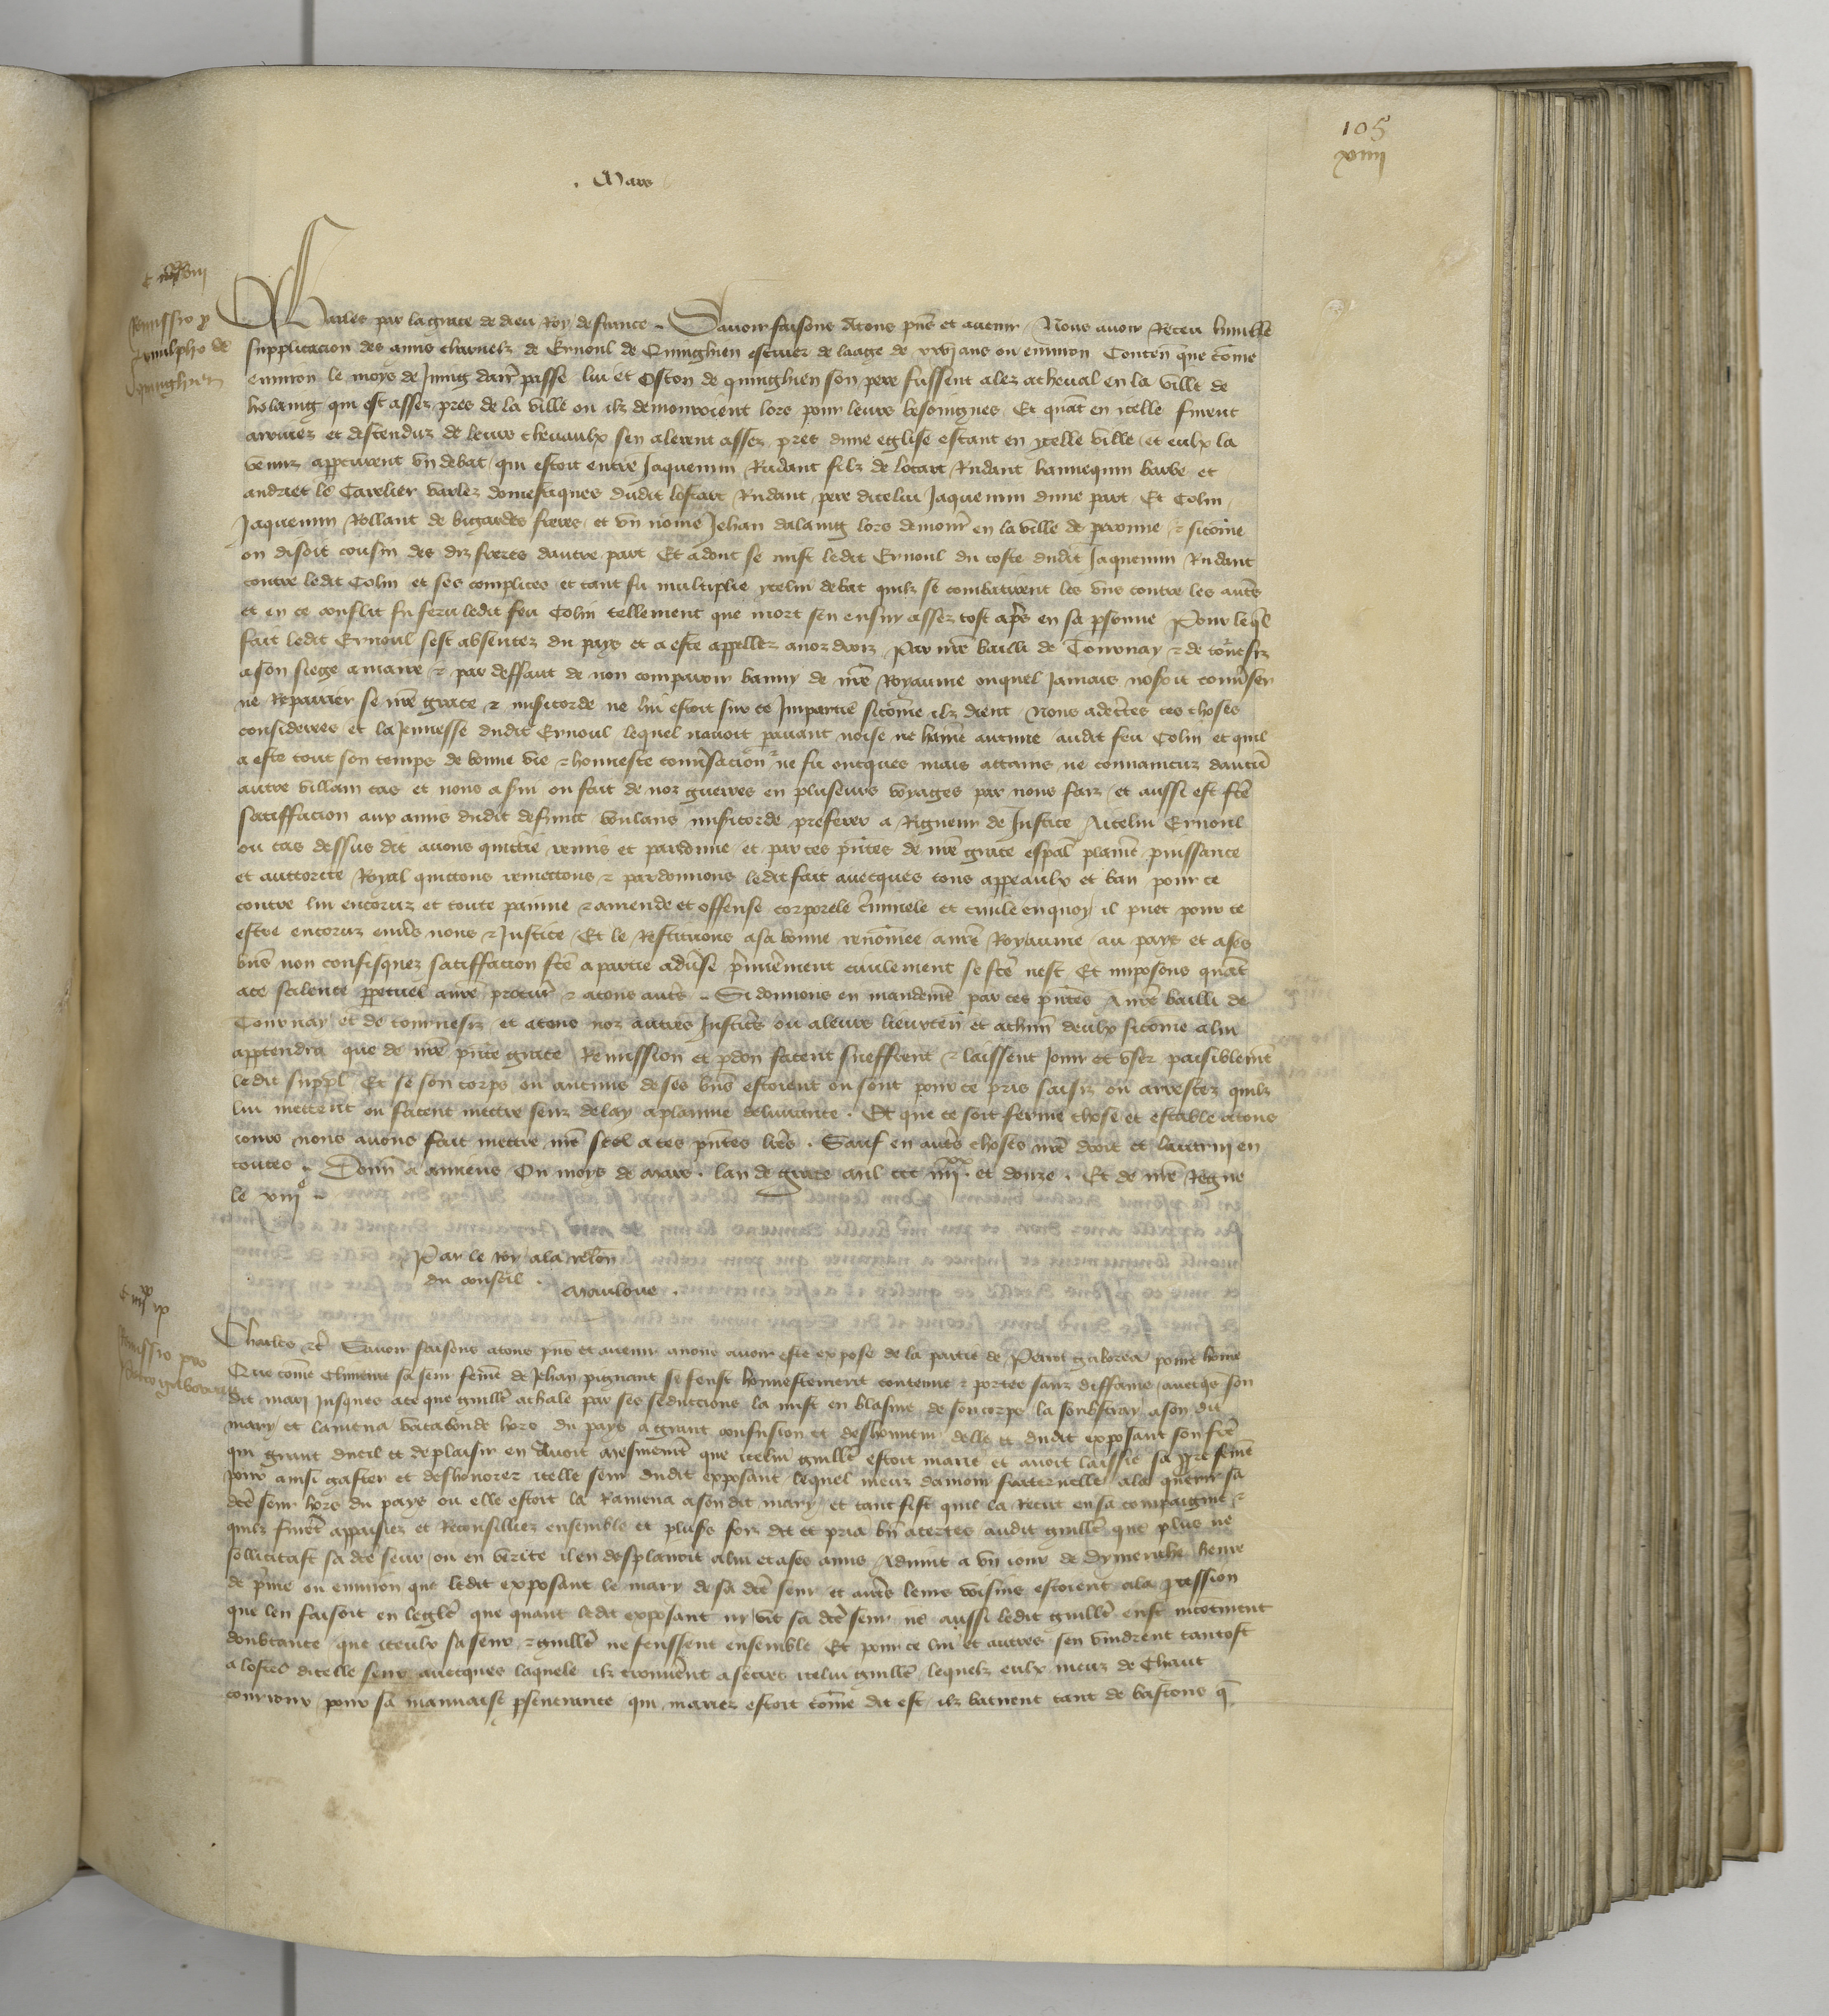 105
xviii
. Mars
Remissio p
Arnulpho de
Quinghien
Charles par la grace de dieu Roy de france. Savoir faisons Atous pns et avenir / Nous avoir Receu humble
supplicacion des amis charnelz de Ernoul de Quinghien escuier de laage de xxvj ans ou environ Conten que come
environ le moys de Juing darr passe lui et Oston de quinghien son pere fussent alez acheval en la ville de
holaing qui est assez pres de la ville ou ilz demouroient lors pour leurs besoingnes Et quat en icelle furent
arrivez et descenduz de leurs chevaulx sen alerent assez pres dune eglise estant en ycelle ville et eulx la
venuz apperceurent un debat qui estoit entre Jaquemin Rudant filz de lotart Rudant hannequin barbe et
andriet le Carelier varlez domestiques dudit lostart Rudant pere dicelui Jaquemin dune part Et Colin
Jaquemin Rollant de bigardes freres et un nome Jehan dalaing lors demour en la ville de peronne / sicome
on disoit cousin des diz freres dautre part Et adont se mist ledit Ernoul du coste dudit Jaquemin Rudant
contre ledit Colin et ses complices et tant fu multiplie ycelui debat quilz se combatirent les uns contre les autres
et en ce conflit fu feru ledit feu Colin tellement que mort sen ensui assez tost apres en sa psonne Pour lequel
fait ledit Ernoul sest absentez du pays et a este appellez anoz droiz Par nre bailli de Tournay & de tournesiz
ason siege a maire & par deffaut de non comparoir banny de nre Royaume ouquel Jamais noseroit converser
ne Repairier se nre grace & misericorde ne lui estoit sur ce Impartie sicome ilz dient Nous adcertes ces choses
considerees et la Jeunesse dudit Ernoul lequel navoit pavant noise ne haine aucune audit feu Colin et quil
a este tout son temps de bonne vie & honneste conversacion ne fu oncques mais attains ne convaincuz daucun
autre villain cas et nous a servi ou fait de noz guerres en pluseurs voyages par nous faiz et aussi est fte
satiffacion aux amis dudit defunct voulans misicorde preferer a Rigueur de Justice Aicelui Ernoul
ou cas dessus dit avons quittie remis et pardonne et par ces pntes de nre grace espal plaine puissance
et auttorite Royal quictons remectons & pardonnons ledit fait avecques tous appeaulx et ban pour ce
contre lui encoruz et toute painne & amende et offense corporele criminele et civile en quoy il puet pour ce
estre encoruz envers nous & Justice Et le Restituons asa bonne renomee anre Royaume au pays et ases
biens non confisquez satiffacion fte apartie adverse premierement civilement se fte nest Et imposons quant
ace scilence perpetuel anre procur & atous autres. Si donnons en mandement par ces pntes A nre bailli de
Tournay et de tournesiz et atous noz autres Justiciers ou aleurs lieuxten et achun deulx sicome alui
apptendra que de nre pnte grace Remission et pdon facent sueffrent & laissent Jouir et user paisiblement
ledit suppl Et se son corps ou aucuns deses biens estoient ou sont pour ce pris saisiz ou arrestez quilz
lui mettent ou facent mettre senz delay aplainne delivrance. Et que ce soit ferme chose et estable atous
jours nous avons fait mettre nre seel aces pntes lres. Sauf en autres choses nre droit et lautrui en
toutes. Donn a amiens Ou moys de mars. lan de grace mil ccc iiiixx et douze. Et de nre Regne
le xiiie.
Par le roy ala relon
du conseil.
Charles etc Savoir faisons atous pns et avenir anous avoir este expose de la partie de Perrot gaboreau povre home
Que come Climence sa seur feme de Jehan pignant se feust honnestement contenue & portee sanz diffame avecqs son
dit mari Jusques ace que guille achale par ses seduccions la mist en blasme de son corps la soubstray ason dit
mary et lamena vacabonde hors du pays a grant confusion et deshonneur delle et dudit exposant son fre
qui grant dueil et deplaisir en avoit mesmement que icelui guille estoit marie et avoit laissie sa ppre feme
pour ainsi gaster et deshonorer icelle seur dudit exposant lequel meuz damour fraternelle ala querir sa
dte seur hors du pays ou elle estoit la Ramena ason dit mary et tant fist quil la Recut en sa compaignie &
quilz furent appaisiez et Reconsilliez ensemble et plusrs foiz dit et pria bn acertes audit guille que plus ne
sollicitast sa dte seur ou en verite il en desplairoit alui et ases amis Advint a un jour de Dymenche heure
de prime ou environ que ledit exposant le mary de sa dte seur et autres leurs voisins estoient ala pcession
que len faisoit en leglise que quant ledit exposant ny vit sa dte seur ne aussi ledit guille eust incontinent
doubtance que iceulx sa seur & guille ne feussent ensemble Et pour ce lui et autres sen vindrent tantost
a lostel dicelle seur avecques laquele ilz trouverent asecret icelui guille lequelz eulx meuz de Chaut
courroux pour sa mauvaise pseverance qui mariez estoit come dit est ilz batirent tant de bastons q